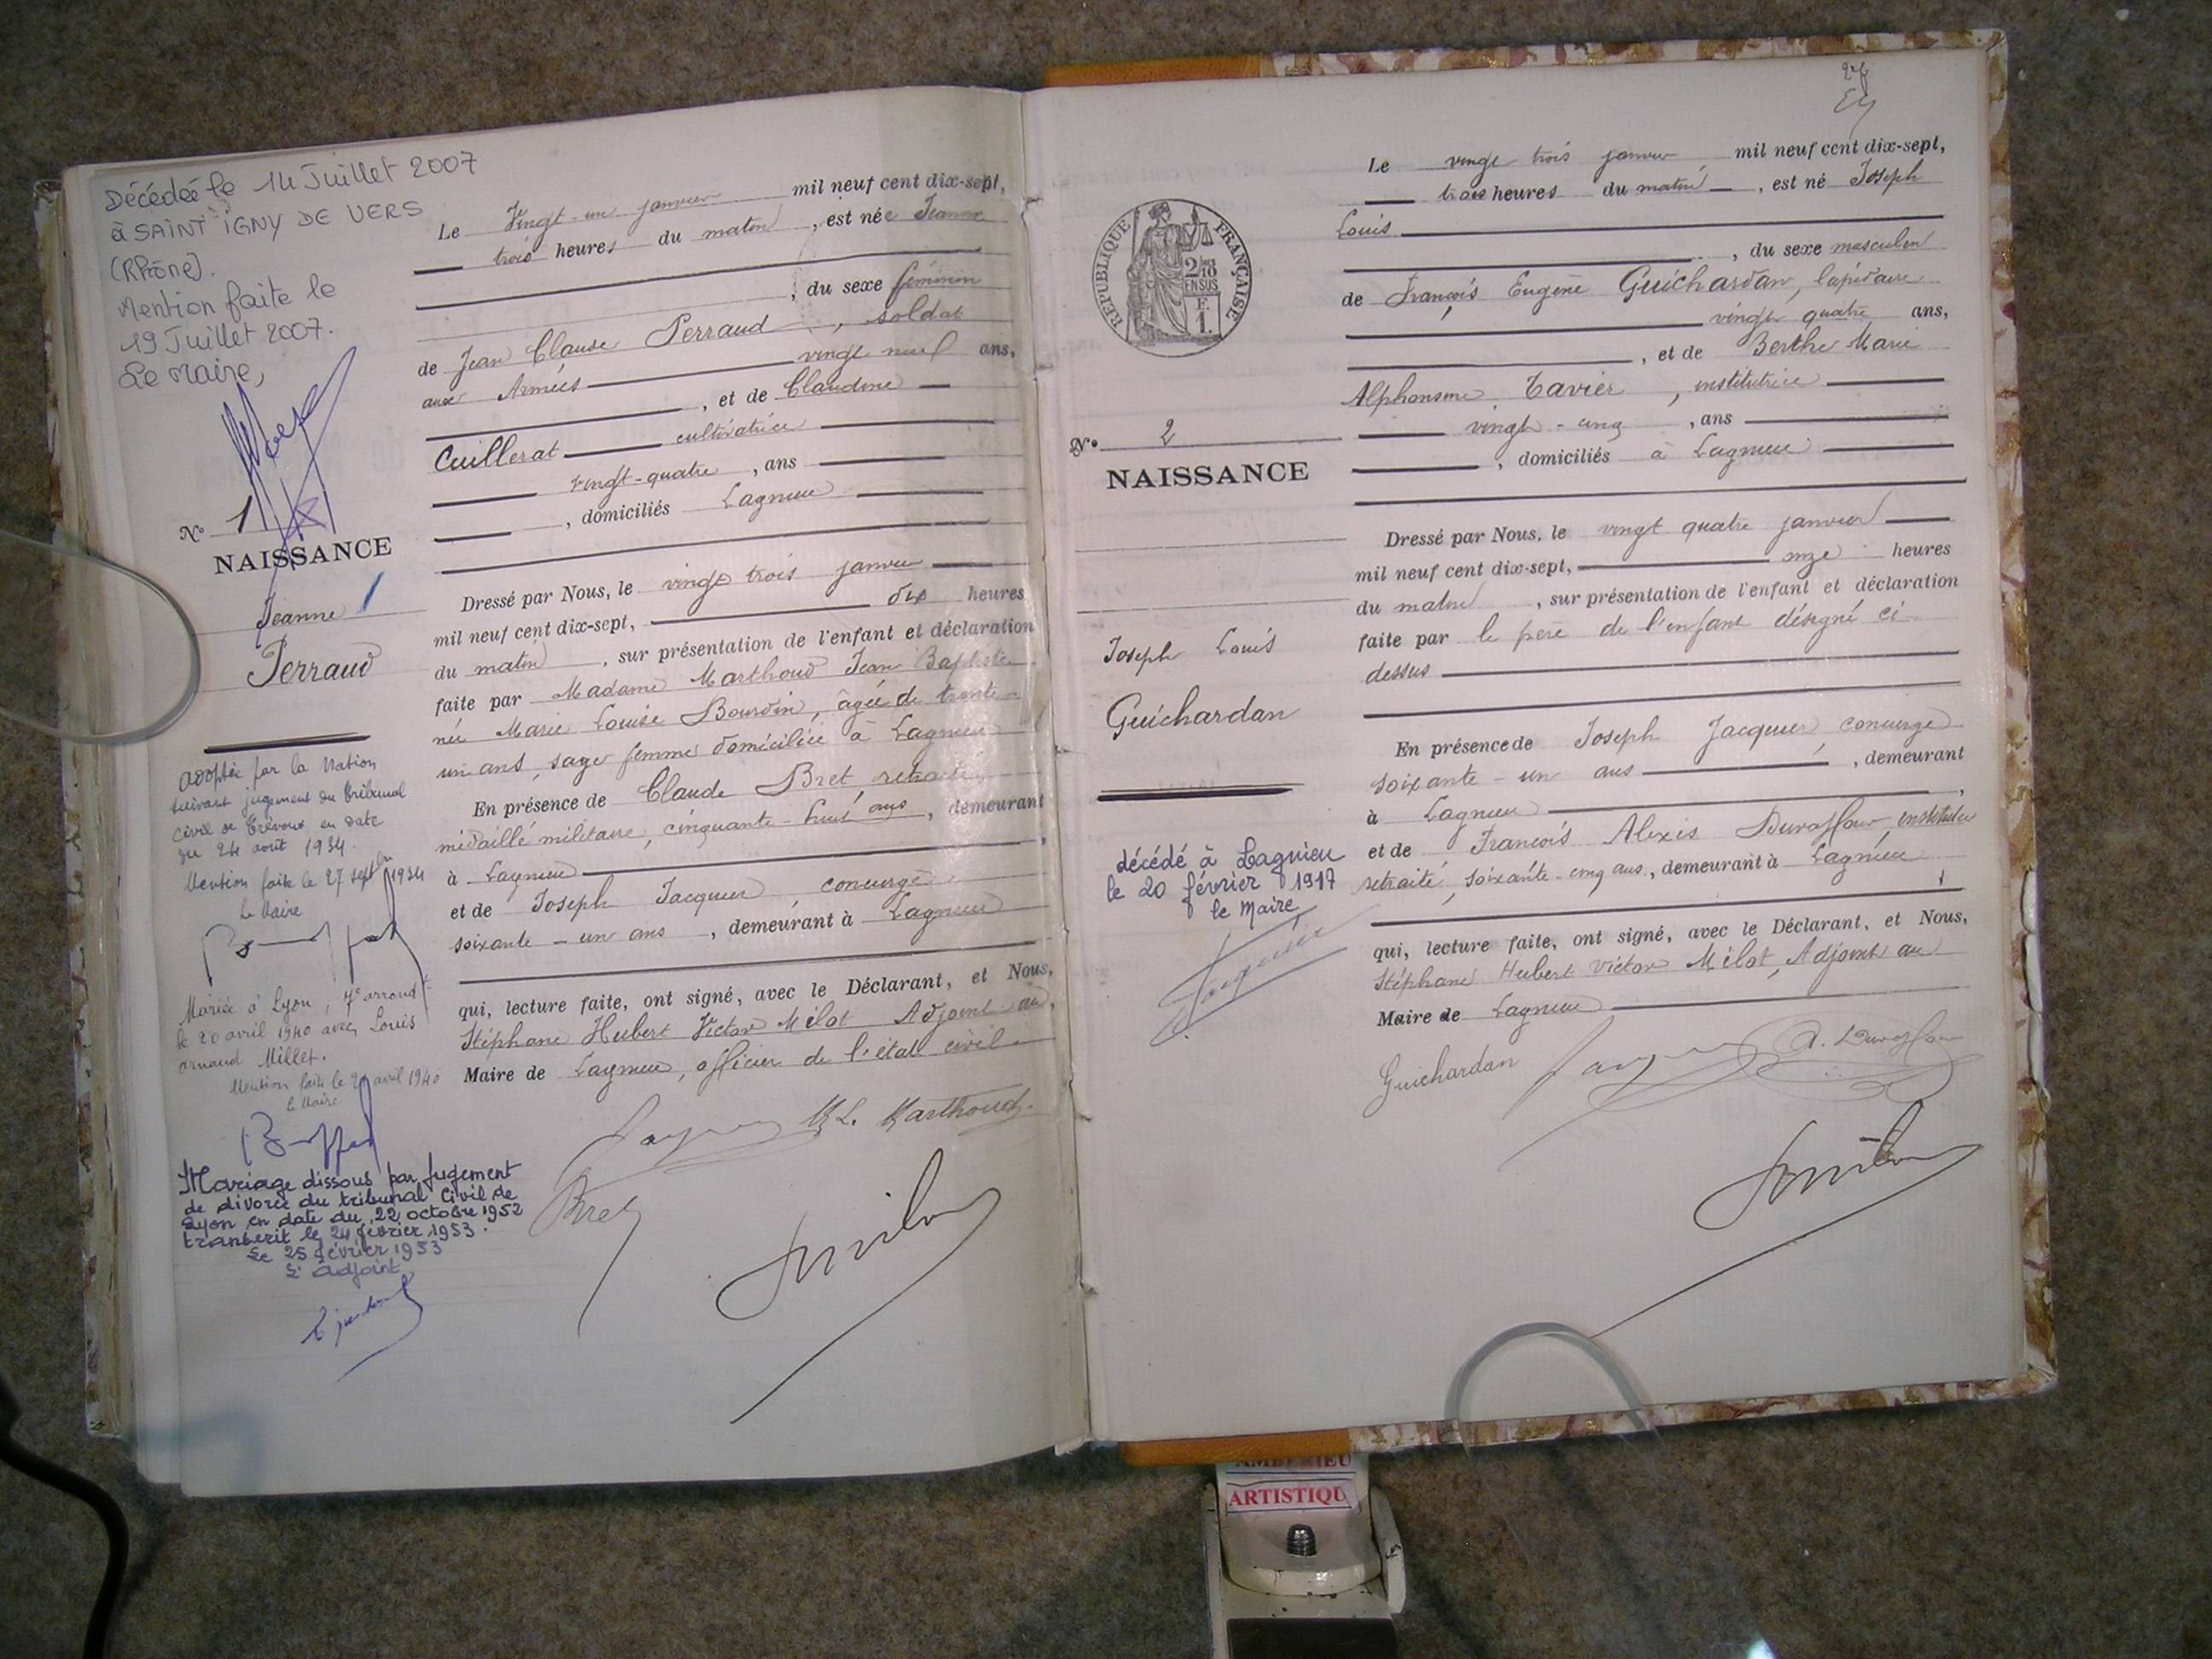 Décédée le 14 Juillet 2007
à SAINT IGNY DE VERS
(Rhône).
Mention faite le
19 Juillet 2007.
Le Maire,
N° 1
NAISSANCE
Jeanne
Perraud
adoptée par la Nation
suivant jugement du tribunal
civil de Trévoux en date
du 24 août 1934.
Mention faite le 27 sept 1934
le Maire
Mariée à Lyon, 4e arrond
le 20 avril 1940 avec Louis
arnaud Millet.
Mention faite le avril 1940
le Maire
Mariage dissous par jugement
de divorce du tribunal Civil de
Lyon en date du 22 octobre 1952
transcrit le 24 février 1953.
Le 25 février 1953
L'adjoint
Le Vingt-un janvier mil neuf cent dix-sept,
trois heures du matin, est née Jeanne
, du sexe féminin
de Jean Claude Perraud, soldat
aux Armées vingt neuf ans,
, et de Claudine
Cuillerat cultivatrice
vingt-quatre, ans
, domiciliés Lagnieu
Dressé par Nous, le vingt trois janvier
mil neuf cent dix-sept, dix heures
du matin, sur présentation de l'enfant et déclaration
faite par Madame Marthoud Jean Baptiste
née Marie Louise Bourdin, âgée de trente-
un ans, sage femme domiciliée à Lagnieu
En présence de Claude Bret, retraité,
médaillé militaire, cinquante-huit ans, demeurant
à Lagnieu,
et de Joseph Jacquier, concierge
soixante-un ans, demeurant à Lagnieu
qui, lecture faite, ont signé, avec le Déclarant, et Nous,
Stéphane Hubert Victor Milot Adjoint au
Maire de Lagnieu, officier de l'état civil
M L. Marthoud
Bret
24
RÉPUBLIQUE FRANÇAISE
2/10
EN SUS
F.
1.
N° 2
NAISSANCE
Joseph Louis
Guichardan
décédé à Lagnieu
le 20 février 1917
le Maire
Le vingt trois janvier mil neuf cent dix-sept,
trois heures du matin, est né Joseph
Louis
, du sexe masculin
de François Eugène Guichardan, lapidaire
vingt quatre ans,
, et de Berthe Marie
Alphonsine Tavier, institutrice
vingt-cinq, ans
, domiciliés à Lagnieu
Dressé par Nous, le vingt quatre janvier
mil neuf cent dix-sept, onze heures
du matin, sur présentation de l'enfant et déclaration
faite par le père de l'enfant désigné ci-
dessus
En présence de Joseph Jacquier, concierge
soixante-un ans, demeurant
à Lagnieu,
et de François Alexis Duraffour, instituteur
retraité, soixante-cinq ans, demeurant à Lagnieu
qui, lecture faite, ont signé, avec le Déclarant, et Nous,
Stéphane Hubert Victor Milot, Adjoint au
Maire de Lagnieu
Guichardan
A. Duraffour
AMBERIEU
ARTISTIQU